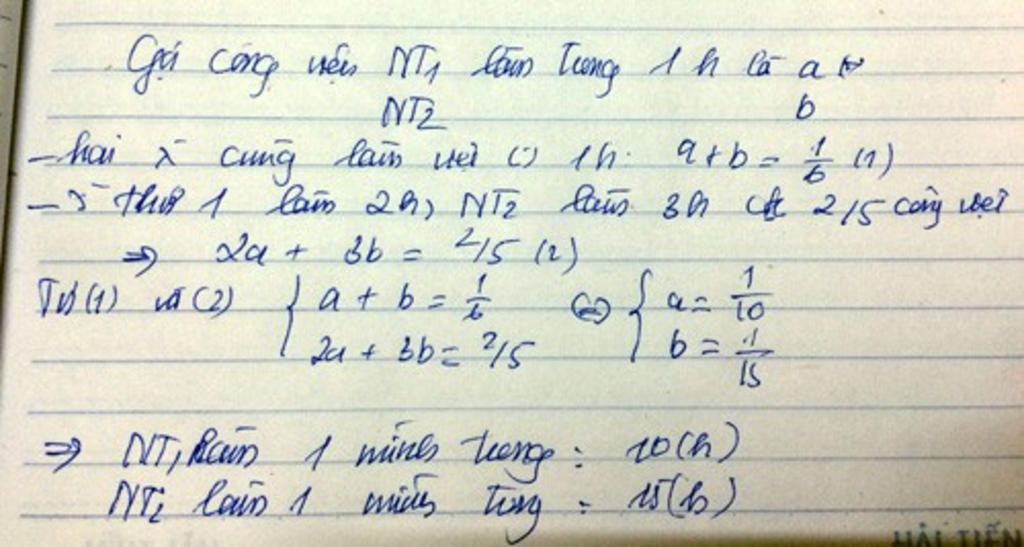 Gọi công việc NT1 làm trong 1 h là a
NT2 b
- hai x̀ cùng làm việc (:) 1h: a + b = 1/6 (1)
- x̀ thứ 1 làm 2h, NT2 làm 3h 2/5 công việc
=> 2a + 3b = 2/5 (2)
Từ (1) và (2) { a + b = 1/6 <=> { a = 1/10
2a + 3b = 2/5 b = 1/15
=> NT1 làm 1 mình trong : 10(h)
NT2 làm 1 mình trong : 15(h)
HẢI TIẾN